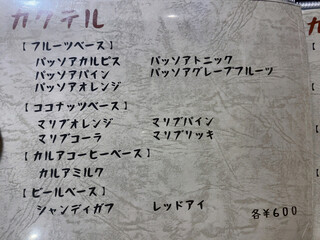 カクテル
【フルーツベース】
パッソアカルピス パッソアトニック
パッソアパイン パッソアグレープフルーツ
パッソアオレンジ
【ココナッツベース】
マリブオレンジ マリブパイン
マリブコーラ マリブリッキ
【カルアコーヒーベース】
カルアミルク
【ビールベース】
シャンディガフ レッドアイ
各¥600